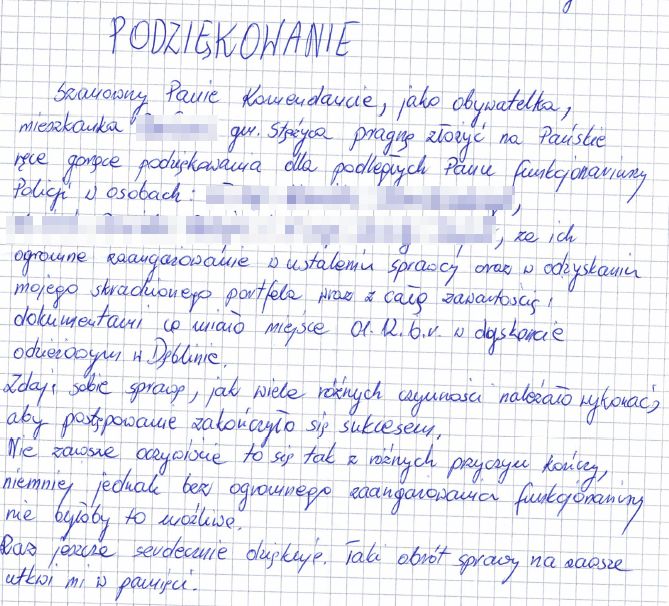 PODZIĘKOWANIE
Szanowny Panie Komendancie, jako obywatelka,
mieszkanka gm. Stężyca pragnę złożyć na Pańskie
ręce gorące podziękowania dla podległych Panu funkcjonariuszy
Policji w osobach: ,
, za ich
ogromne zaangażowanie w ustaleniu sprawcy oraz w odzyskaniu
mojego skradzionego portfela wraz z całą zawartością i
dokumentami co miało miejsce 01.12.b.r. w dyskoncie
odzieżowym w Dęblinie.
Zdaję sobie sprawę, jak wiele różnych czynności należało wykonać,
aby postępowanie zakończyło się sukcesem.
Nie zawsze oczywiście to się tak z różnych przyczyn kończy,
niemniej jednak bez ogromnego zaangażowania funkcjonariuszy
nie byłoby to możliwe.
Raz jeszcze serdecznie dziękuję. Taki obrót sprawy na zawsze
utkwi mi w pamięci.